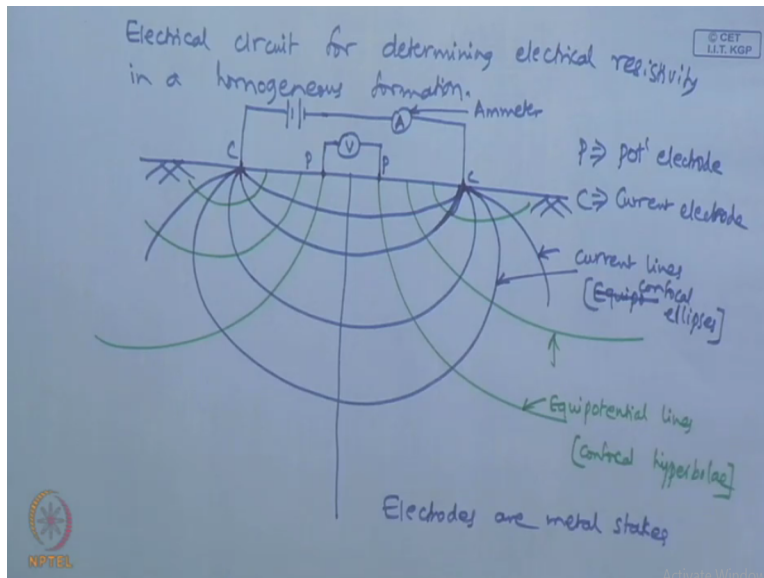 Electrical circuit for determining electrical resistivity
in a homogeneous formation.
© CET
I.I.T. KGP
A
Ammeter
C
P
V
P
C
P ⇒ pot' electrode
C ⇒ Current electrode
Current lines
[Equip confocal
ellipses]
Equipotential lines
[Confocal hyperbolae]
Electrodes are metal stakes
NPTEL
Activate Window